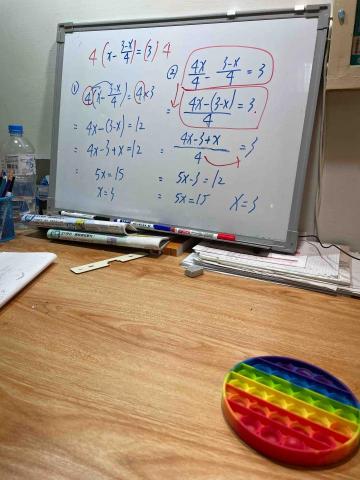 4(x-\frac{3-x}{4})=(3)4
① 4(x-\frac{3-x}{4})=4×3
= 4x-(3-x)=12
= 4x-3+x=12
= 5x=15
x=3
② \frac{4x}{4}-\frac{3-x}{4}=3
= \frac{4x-(3-x)}{4}=3.
= \frac{4x-3+x}{4}=3
= 5x-3=12
= 5x=15 x=3